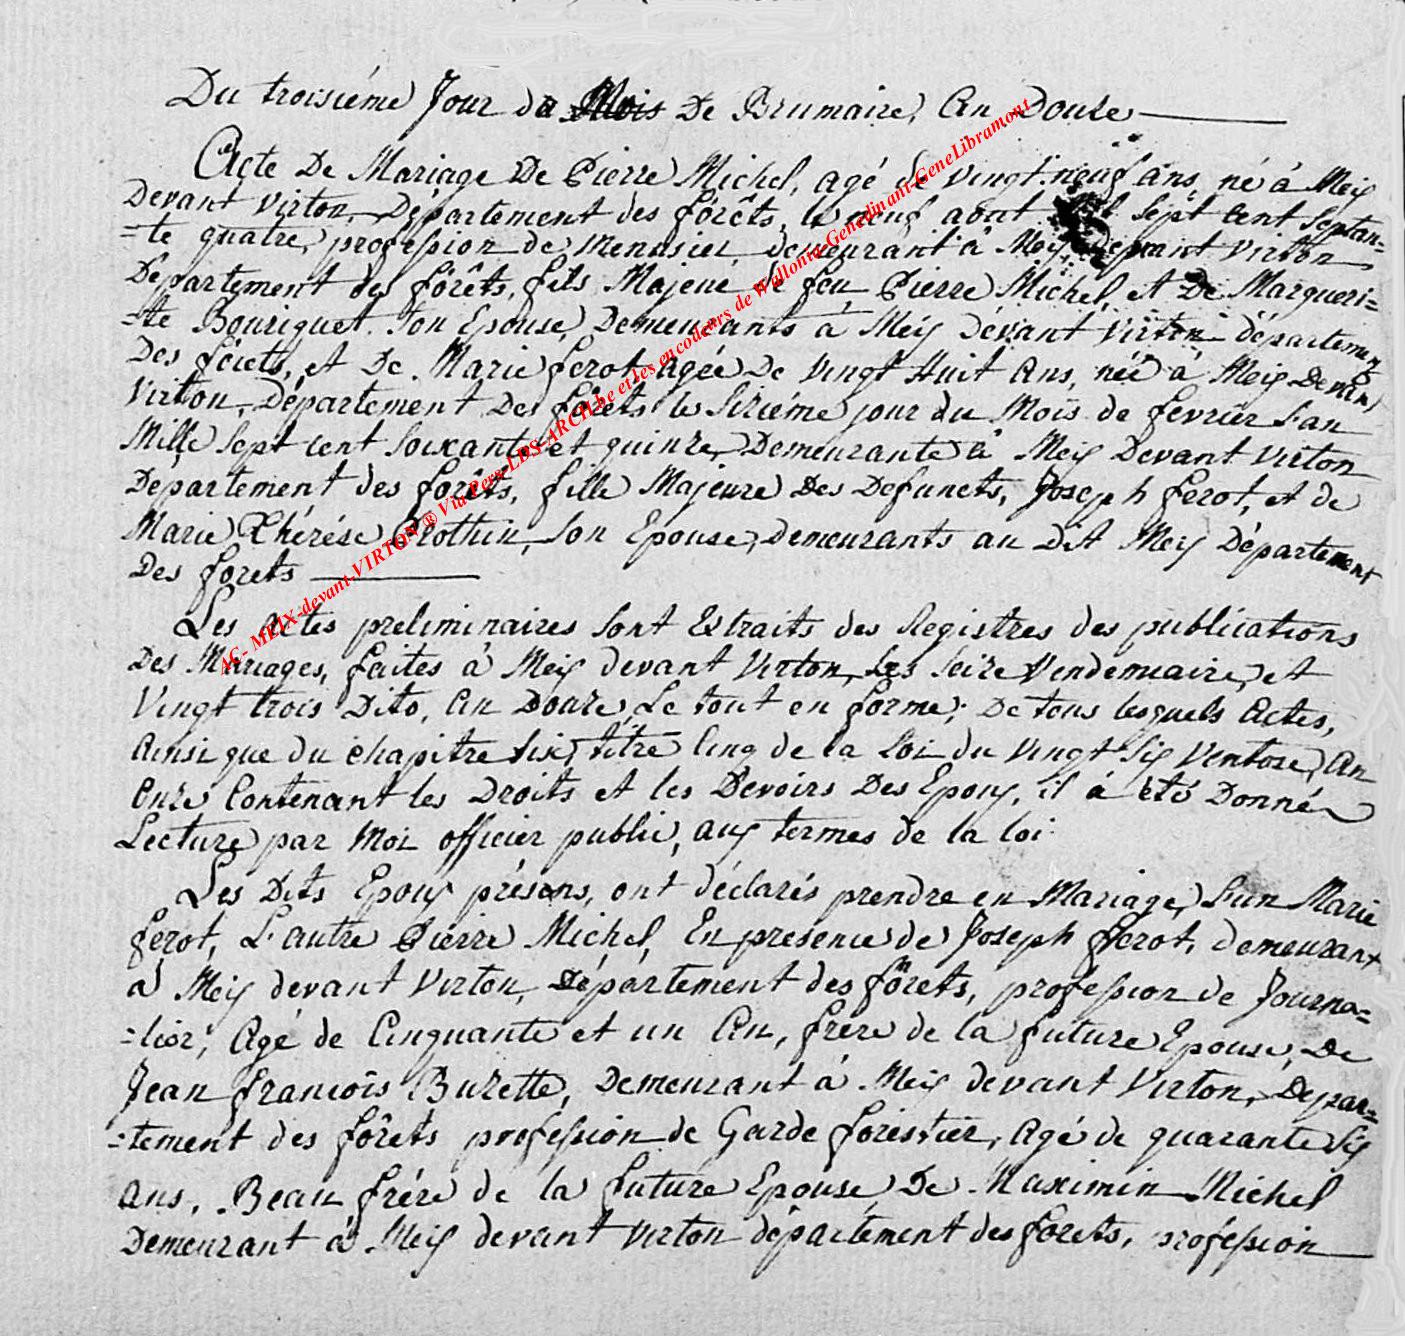 Du troisiéme Jour du Mois De Brumaire, An Douze
Acte De Mariage De Pierre Michel, agé de vingt neuf ans, né à Meix
Devant Virton, Département des forêts, le neuf aout mil sept cent septan=
=te quatre, profession de menusier, demeurant à Meix devant Virton
Département des forêts, fils Majeur de feu Pierre Michel, et De Margueri=
=te Bouriguet son Epouse, Demeurants à Meix dévant Virton département
Des forets, et De Marie ferot agée De vingt Huit Ans, née à Meix Devant
Virton, Département Des forets le sixiéme jour du Mois de fevrier l'an
Mille sept cent soixante et quinze, Demeurante à Meix Devant Virton
Departement des forêts, fille Majeure des Defuncts, Joseph ferot, et de
Marie Thérése Clothin, son Epouse, demeurants au Dit Meix Département
Des forets
Les Actes preliminaires sont Extraits des Registres des publications
Des Mariages, faites à Meix devant Virton, les seize Vendemiaire, et
Vingt trois Dito, An Douze, Le tout en forme; De tous lesquels Actes,
Ainsi que du chapitre six, titre Cinq de la Loi du Vingt Six Ventose, An
Onze Contenant les Droits et les Devoirs Des Epoux, il à été Donné
Lecture par Moi officier public, aux termes de la loi
Les Dits Epoux présens, ont déclarés prendre en Mariage, l'un Marie
ferot, L'autre Pierre Michel, En presence de Joseph fferot, demeurant
à Meix devant Virton, Département des forets, profession de Journa=
=lier, Agé de Cinquante et un An, frere de la future Epouse, De
Jean francois Burette, Demeurant à Meix devant Virton, Depar=
=tement des forêts profession de Garde forestier, Agé de quarante Six
ans, Beau frére de la future Epouse, De Maximin Michel
Demeurant à Meix devant Virton département des forets, profession
AC- MEIX-devant-VIRTON ® Via Pers-LDS-ARCH.be et les encodeurs de Wallonie-Genedinant-GeneLibramont